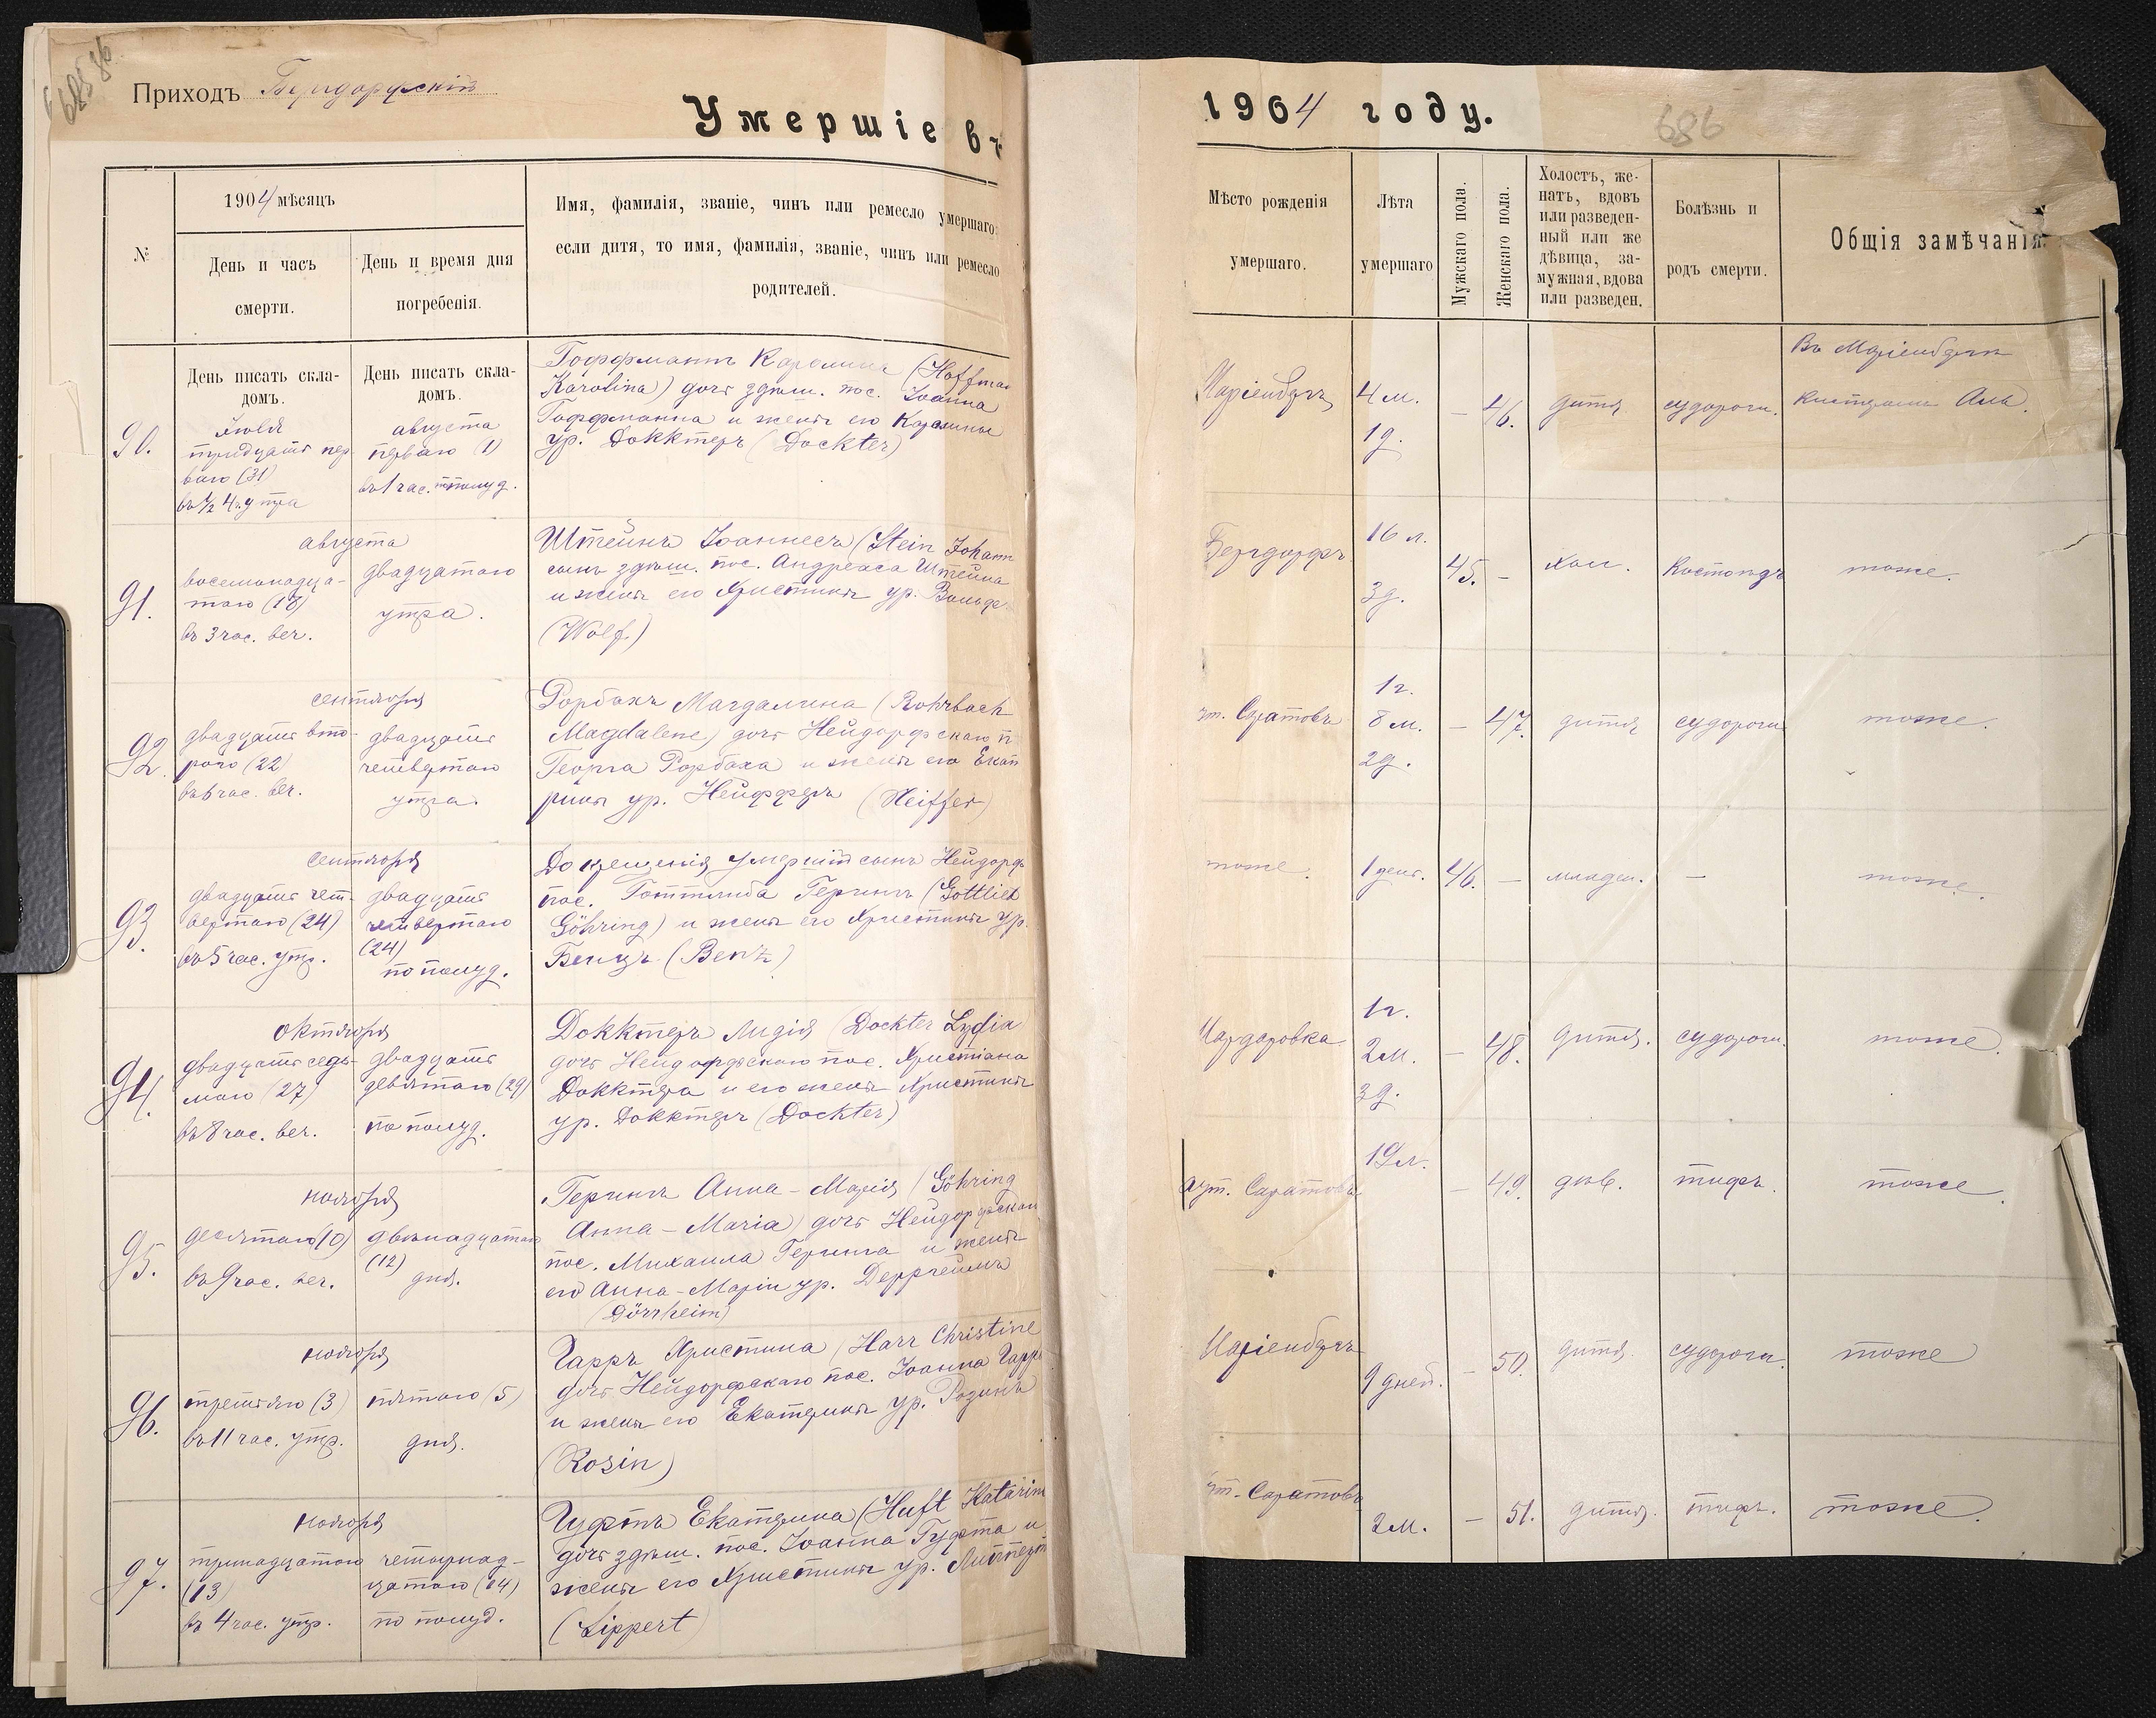 68586
Приходъ Бергдорфскій
Умершіе въ
№
1904 мѣсяцъ
День и часъ
смерти.
День и время дня
погребенія.
Имя, фамилія, званіе, чинъ или ремесло умершаго:
если дитя, то имя, фамилія, званіе, чинъ или ремесло
родителей.
День писать скла-
домъ.
День писать скла-
домъ.
90.
іюля
тридцать пер
ваго (31)
въ ½ 4 ч. утра
августа
перваго (1)
въ 1 час. пополуд.
Гоффманъ Каролина (Hoffman
Karolina) дочь здѣш. пос. Іоанна
Гоффманна и жены его Каролины
ур. Докктеръ (Dockter)
91.
августа
восемнадца-
таго (18)
въ 3 час. веч.
двадцатаго
утра.
Штейнъ Іоаннесъ (Stein Johann
сынъ здѣш. пос. Андреаса Штейна
и жены его Христины ур. Вольф
(Wolf.)
92.
сентября
двадцать вто-
рого (22)
въ 6 час. веч.
двадцать
четвертаго
утра.
Рорбахъ Магдалина (Rohrbach
Magdalene) дочь Нейдорфскаго п
Георга Рорбаха и жены его Екат
рины ур. Нейфферъ (Neiffer)
93.
сентября
двадцать чет-
вертаго (24)
въ 5 час. утр.
двадцать
четвертаго
(24)
по полуд.
До крещенія умершій сынъ Нейдорф
пос. Готтлиба Герингъ (Gottlieb
Göhring) и жены его Христины ур.
Бенцъ (Benz)
94.
октября
двадцать седь-
маго (27)
въ 8 час. веч.
двадцать
девятаго (29)
по полуд.
Докктеръ Лидія (Dockter Lydia
дочь Нейдорфскаго пос. Христіана
Докктера и его жены Христины
ур. Докктеръ (Dockter)
95.
ноября
десятаго (10)
въ 9 час. веч.
двѣнадцатаго
(12)
дня.
Герингъ Анна-Марія (Göhring
Anna-Maria) дочь Нейдорфскаго
пос. Михаила Геринга и жены
его Анна-Маріи ур. Дерргеймъ
(Dörrheim)
96.
ноября
третьяго (3)
въ 11 час. утр.
пятаго (5)
дня.
Гарръ Христина (Harr Christine
дочь Нейдорфскаго пос. Іоанна Гарр
и жены его Екатерины ур. Розинъ
(Rosin)
97.
ноября
тринадцатаго
(13)
въ 4 час. утр.
четырнад-
цатаго (14)
по полуд.
Гуфтъ Екатерина (Huft Katarin
дочь здѣш. пос. Іоанна Гуфта и
жены его Христины ур. Липперт
(Lippert
1904 году.
686
Мѣсто рожденія
умершаго.
Лѣта
умершаго
Мужскаго пола.
Женскаго пола.
Холостъ, же-
натъ, вдовъ
или разведен-
ный или же
дѣвица, за-
мужная, вдова
или разведен.
Болѣзнь и
родъ смерти.
Общія замѣчанія.
Маріенбергъ
4 м.
1 д.
–
46.
дитя
судороги.
Въ Маріенбергѣ
Кистеромъ
Бергдорфъ
16 л.
3 д.
45.
–
хол.
тоже.
ут. Саратовъ
1 г.
8 м.
2 д.
–
47.
дитя
судороги
тоже.
тоже.
1 день.
46.
–
младен.
–
тоже.
Чардаровка
1 г.
2 м.
3 д.
–
48.
дитя.
судороги.
тоже.
хут. Саратовъ
19 л.
–
49.
дѣв.
тифъ.
тоже.
Маріенбергъ
9 дней.
–
50.
дитя.
судороги.
тоже
ут. Саратовъ
2 м.
–
51.
дитя.
тифъ.
тоже.